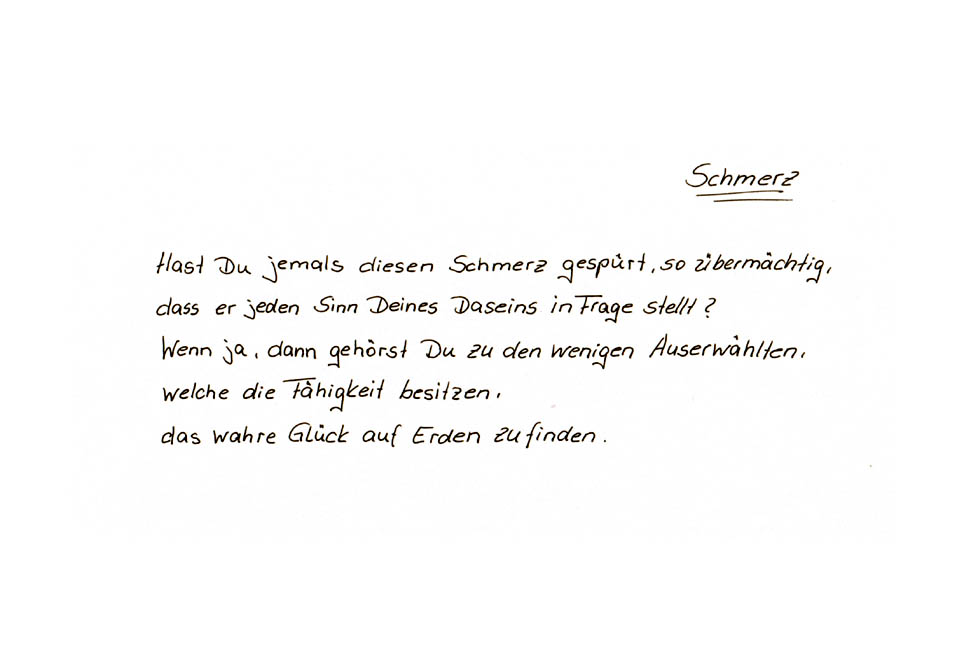 Schmerz
Hast Du jemals diesen Schmerz gespürt, so übermächtig,
dass er jeden Sinn Deines Daseins in Frage stellt?
Wenn ja, dann gehörst Du zu den wenigen Auserwählten,
welche die Fähigkeit besitzen,
das wahre Glück auf Erden zu finden.